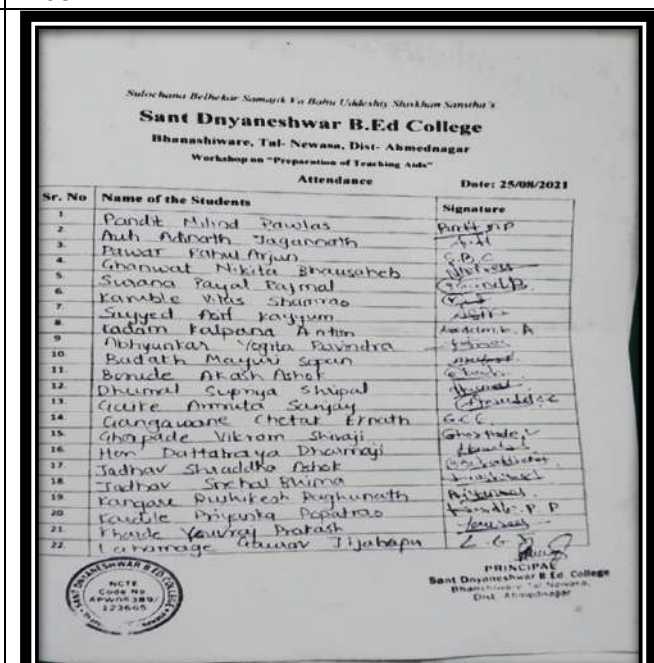 Sulochana Belhekar Samajik Va Bahu Uddeshiy Shikshan Sanstha's
Sant Dnyaneshwar B.Ed College
Bhanashiware, Tal- Newasa, Dist- Ahmednagar
Workshop on "Preparation of Teaching Aids"
Attendance Date: 25/08/2021
Sr. No Name of the Students Signature
1. Pandit Milind Pawlas
2. Auti Adinath Jagannath A.A
3. Pawar Rahul Arjun
4. Ghanwat Nikita Bhausaheb
5. Surana Payal Pajmal
6. Kamble Vilas Shamrao
7. Sayyed Asif Kayyum
8. Kadam Kalpana Anton
9 Abhyankar Yogita Ravindra
10. Badakh Mayuri Sopan
11. Borude Akash Ashok
12. Dhumal Supriya Shripal
13. Gaike Amruta Sanjay
14. Gangawane Chetak Eknath G.C.E
15. Ghorpade Vikram Shivaji Ghorpade V
16. Hon Dattatraya Dharmaji
17. Jadhav Shraddha Ashok
18. Jadhav Snehal Bhima
19. Kangare Rushikesh Raghunath
20. Kardile Priyanka Popatrao P.P
21. Kharde Youvraj Prakash
22. Laharnage Gaurav Jijabapu L.G.J
PRINCIPAL
Sant Dnyaneshwar B.Ed College
Bhanashiware Tal Newasa,
Dist. Ahmednagar
SANT DNYANESHWAR B.ED COLLEGE
NCTE
Code No
APW05389/
123665